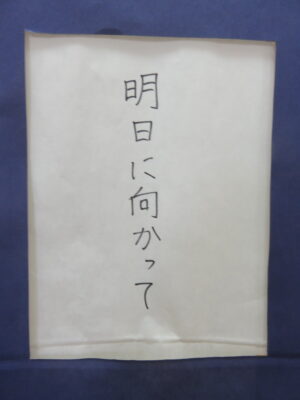 明日に向かって